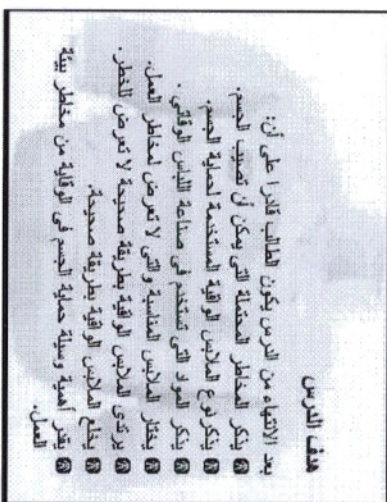 هدف الدرس
بعد الانتهاء من الدرس يكون الطالب قادرا على أن:
يذكر المخاطر المحتملة التي يمكن أن تصيب الجسم.
يذكر نوع الملابس الواقية المستخدمة لحماية الجسم.
يذكر المواد التي تستخدم في صناعة اللباس الوقائي.
يختار الملابس المناسبة والتي لا تعرض لمخاطر العمل.
يرتدى الملابس الواقية بطريقة صحيحة لا تعرض للخطر.
يخلع الملابس الواقية بطريقة صحيحة.
يقدر أهمية وسيلة حماية الجسم في الوقاية من مخاطر بيئة
العمل.